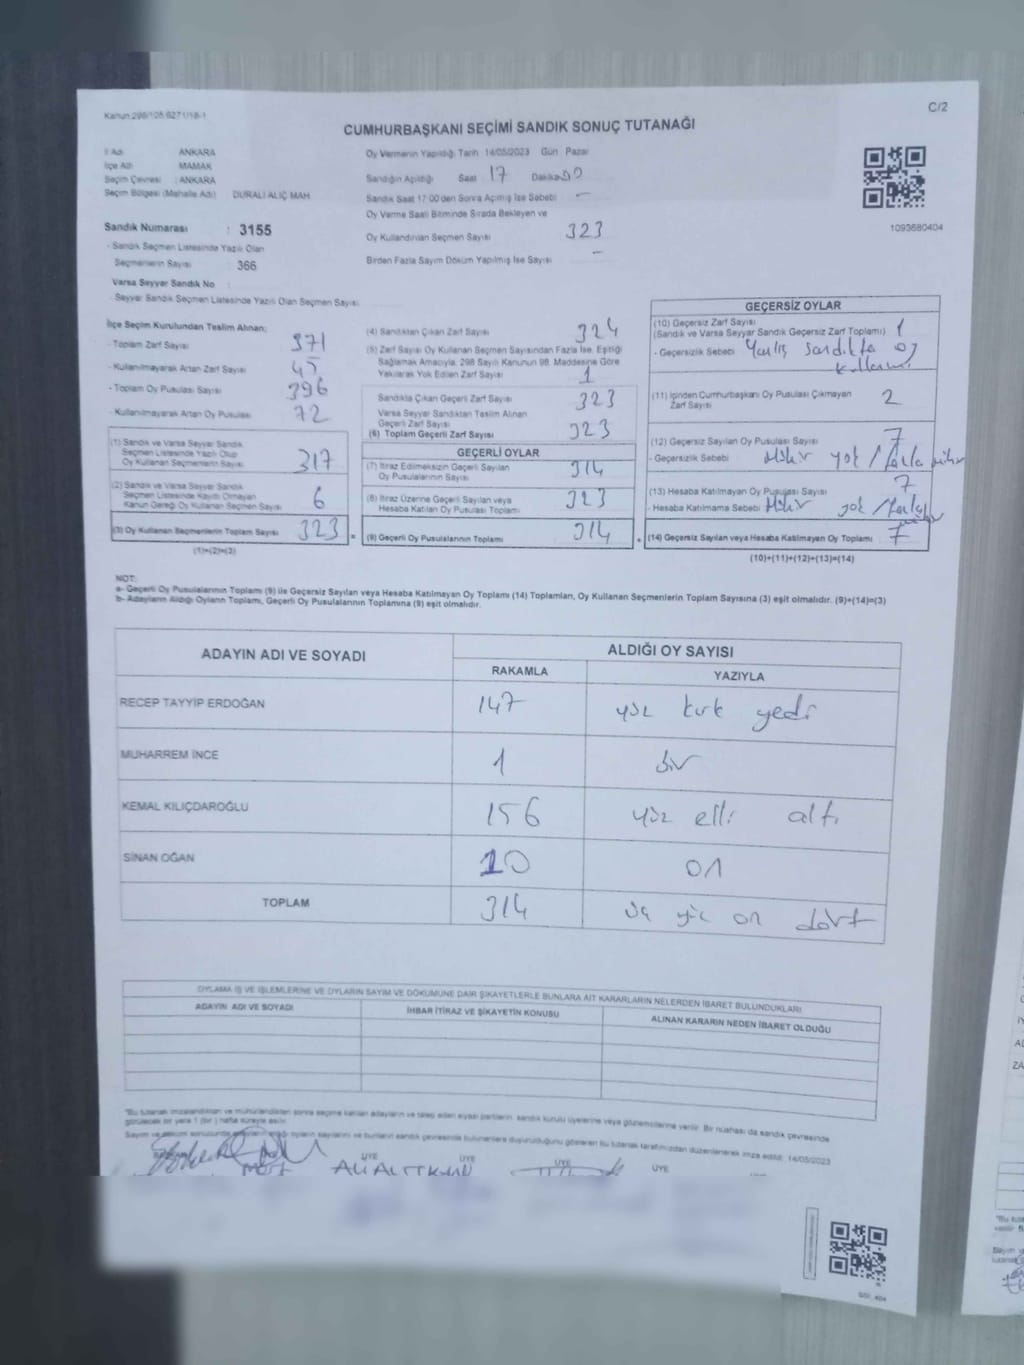 Kanun:298/105,6271/18-1
C/2
CUMHURBAŞKANI SEÇİMİ SANDIK SONUÇ TUTANAĞI
İl Adı : ANKARA
İlçe Adı : MAMAK
Seçim Çevresi : ANKARA
Seçim Bölgesi (Mahalle Adı) : DURALİ ALIÇ MAH
Sandık Numarası : 3155
- Sandık Seçmen Listesinde Yazılı Olan
Seçmenlerin Sayısı : 366
Varsa Seyyar Sandık No :
- Seyyar Sandık Seçmen Listesinde Yazılı Olan Seçmen Sayısı
Oy Vermenin Yapıldığı Tarih 14/05/2023 Gün Pazar
Sandığın Açıldığı Saat 17 Dakika 50
Sandık Saat 17:00'den Sonra Açılmış İse Sebebi -
Oy Verme Saati Bitiminde Sırada Bekleyen ve
Oy Kullandırılan Seçmen Sayısı 323
Birden Fazla Sayım Döküm Yapılmış İse Sayısı -
1093680404
İlçe Seçim Kurulundan Teslim Alınan;
- Toplam Zarf Sayısı 371
- Kullanılmayarak Artan Zarf Sayısı 45
- Toplam Oy Pusulası Sayısı 396
- Kullanılmayarak Artan Oy Pusulası 72
(1) Sandık ve Varsa Seyyar Sandık
Seçmen Listesinde Yazılı Olup
Oy Kullanan Seçmenlerin Sayısı 317
(2) Sandık ve Varsa Seyyar Sandık
Seçmen Listesinde Kayıtlı Olmayan
Kanun Gereği Oy Kullanan Seçmen Sayısı 6
(3) Oy Kullanan Seçmenlerin Toplam Sayısı 323
(1)+(2)=(3)
(4) Sandıktan Çıkan Zarf Sayısı 324
(5) Zarf Sayısı Oy Kullanan Seçmen Sayısından Fazla İse, Eşitliği
Sağlamak Amacıyla, 298 Sayılı Kanunun 98. Maddesine Göre
Yakılarak Yok Edilen Zarf Sayısı 1
Sandıkta Çıkan Geçerli Zarf Sayısı 323
Varsa Seyyar Sandıktan Teslim Alınan
Geçerli Zarf Sayısı
(6) Toplam Geçerli Zarf Sayısı 323
GEÇERLİ OYLAR
(7) İtiraz Edilmeksizin Geçerli Sayılan
Oy Pusulalarının Sayısı 314
(8) İtiraz Üzerine Geçerli Sayılan veya
Hesaba Katılan Oy Pusulası Toplamı 323
(9) Geçerli Oy Pusulalarının Toplamı 314
GEÇERSİZ OYLAR
(10) Geçersiz Zarf Sayısı
(Sandık ve Varsa Seyyar Sandık Geçersiz Zarf Toplamı) 1
- Geçersizlik Sebebi Yanlış sandıkta oy
kullanımı
(11) İçinden Cumhurbaşkanı Oy Pusulası Çıkmayan
Zarf Sayısı 2
(12) Geçersiz Sayılan Oy Pusulası Sayısı 7
- Geçersizlik Sebebi Mühür yok / Fazla mühür
(13) Hesaba Katılmayan Oy Pusulası Sayısı 7
- Hesaba Katılmama Sebebi Mühür yok / Fazla
mühür
(14) Geçersiz Sayılan veya Hesaba Katılmayan Oy Toplamı 7
(10)+(11)+(12)+(13)=(14)
NOT:
a- Geçerli Oy Pusulalarının Toplamı (9) ile Geçersiz Sayılan veya Hesaba Katılmayan Oy Toplamı (14) Toplamları, Oy Kullanan Seçmenlerin Toplam Sayısına (3) eşit olmalıdır. (9)+(14)=(3)
b- Adayların Aldığı Oyların Toplamı, Geçerli Oy Pusulalarının Toplamına (9) eşit olmalıdır.
ADAYIN ADI VE SOYADI
ALDIĞI OY SAYISI
RAKAMLA YAZIYLA
RECEP TAYYİP ERDOĞAN 147 yüz kırk yedi
MUHARREM İNCE 1 bir
KEMAL KILIÇDAROĞLU 156 yüz elli altı
SİNAN OĞAN 10 on
TOPLAM 314 üç yüz on dört
OYLAMA İŞ VE İŞLEMLERİNE VE OYLARIN SAYIM VE DÖKÜMÜNE DAİR ŞİKAYETLERLE BUNLARA AİT KARARLARIN NELERDEN İBARET BULUNDUKLARI
ADAYIN ADI VE SOYADI İHBAR İTİRAZ VE ŞİKAYETİN KONUSU ALINAN KARARIN NEDEN İBARET OLDUĞU
*Bu tutanak imzalandıktan ve mühürlendikten sonra seçime katılan adayların ve talep eden siyasi partilerin, sandık kurulu üyelerine veya gözlemcilerine verilir. Bir nüshası da sandık çevresinde
görülecek bir yere 1 (bir) hafta süreyle asılır.
14/05/2023
ÜYE ÜYE ÜYE ÜYE